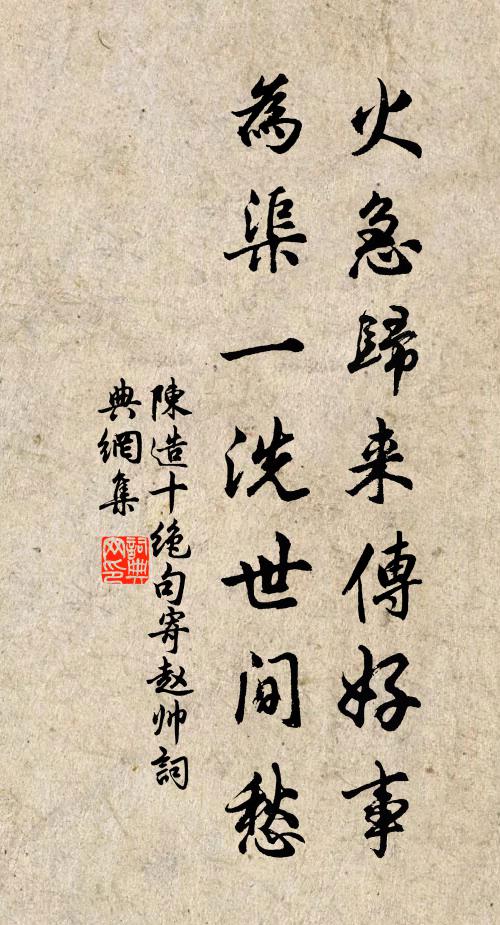 火急歸来傳好事
為渠一洗世間愁
陳造十绝句寄赵帅詞
典網集
詞典
网印